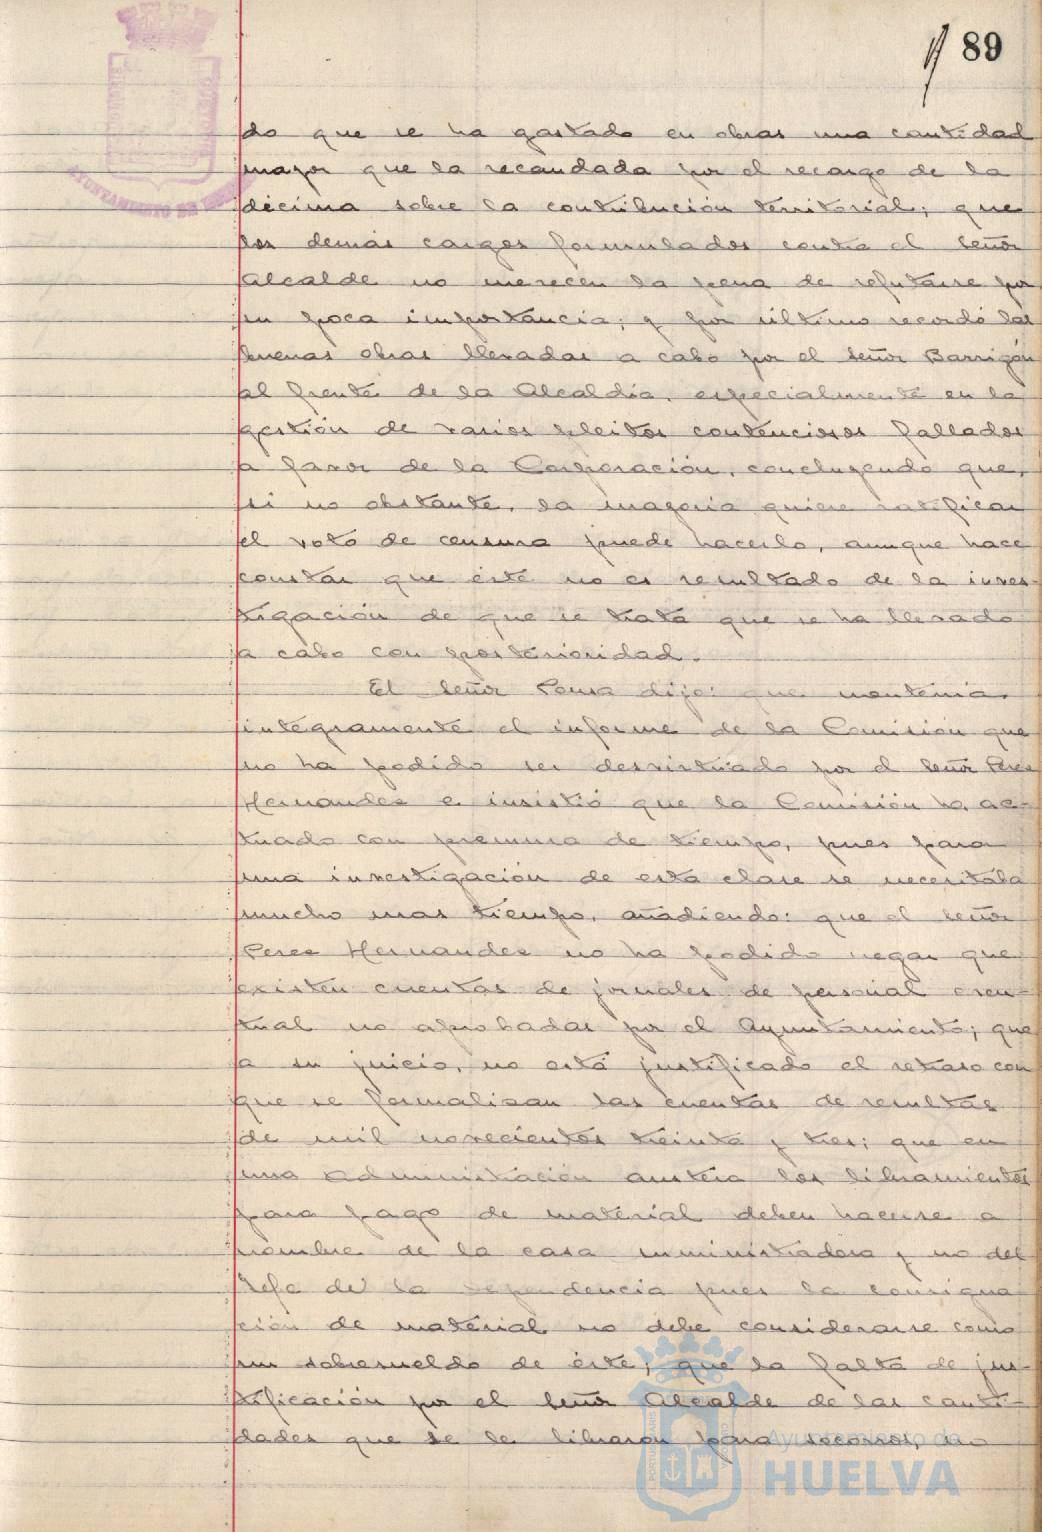 89
do que se ha gastado en obras una cantidad
mayor que la recaudada por el recargo de la
décima sobre la contribución territorial; que
los demás cargos formulados contra el Señor
Alcalde no merecen la pena de refutarse por
su poca importancia; y por último recordó las
buenas obras llevadas a cabo por el Señor Barrigón
al frente de la Alcaldía, especialmente en la
gestión de varios pleitos contenciosos fallados
a favor de la Corporación, concluyendo que,
si no obstante, la mayoria quiere ratificar
el voto de censura puede hacerlo, aunque hace
constar que éste no es resultado de la inves-
tigación de que se trata que se ha llevado
a cabo con posterioridad.
El Señor dijo: que mantenia
integramente el informe de la Comisión que
no ha podido ser desvirtuado por el Señor Peres
Hernandes e insistió que la Comisión ha ac-
tuado con premura de tiempo, pues para
una investigación de esta clase se necesitaba
mucho mas tiempo, añadiendo: que el Señor
Peres Hernandes no ha podido negar que
existen cuentas de jornales de personal even-
tual no aprobadas por el Ayuntamiento; que
a su juicio, no está justificado el retraso con
que se formalisan las cuentas de resultas
de mil novecientos treinta y tres; que en
una administración austera los libramientos
para pago de material deben hacerse a
nombre de la casa suministradora y no del
Jefe de la dependencia pues la consigna
ción de material no debe considerarse como
un sobresueldo de éste; que la falta de jus-
tificación por el Señor Alcalde de las canti-
dades que se le libraron para socorros, no
AYUNTAMIENTO DE
Ayuntamiento de
HUELVA